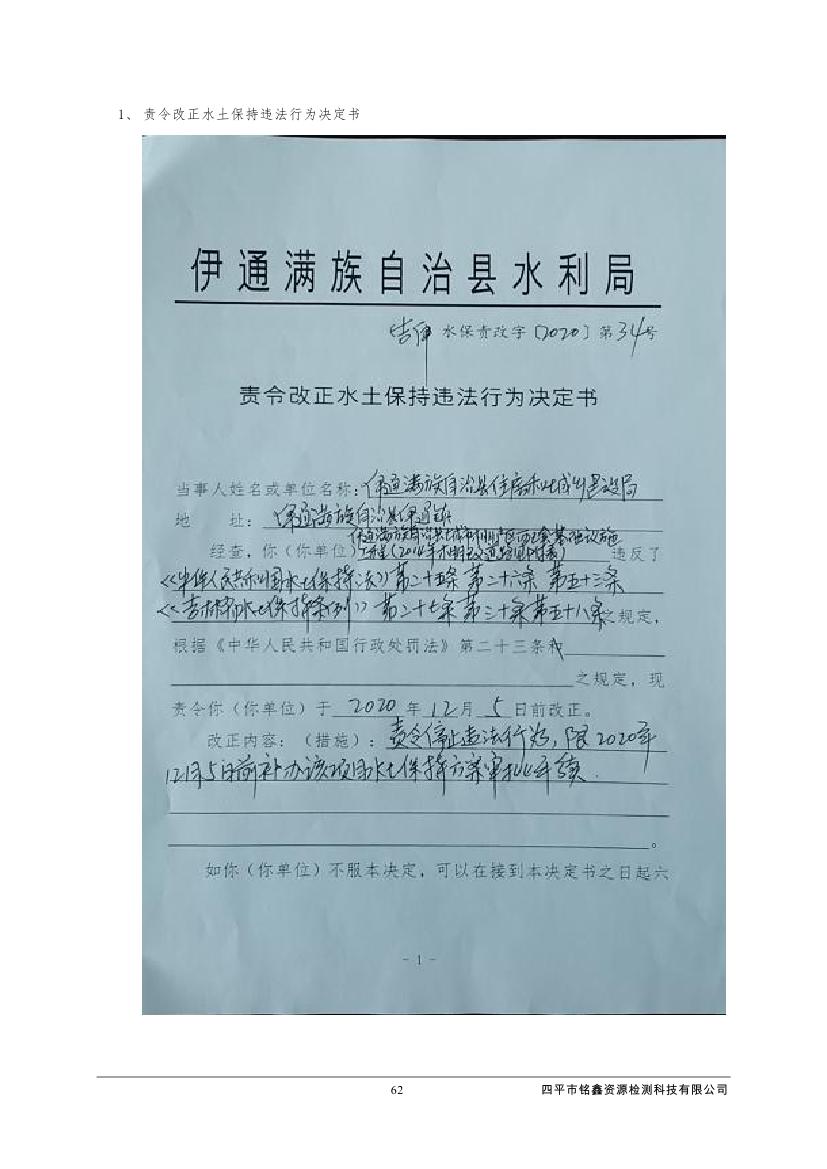 1、 责令改正水土保持违法行为决定书
伊通满族自治县水利局
水保责改字〔2020〕第34号
责令改正水土保持违法行为决定书
当事人姓名或单位名称：伊通满族自治县住房和城乡建设局
地 址：伊通满族自治县伊通镇
伊通满族自治县 基础设施
经查，你（你单位）工程（2014年 道路 ）违反了
《中华人民共和国水土保持法》第二十五条第二十六条第五十三条
《吉林省水土保持条例》第二十七条第三十条第五十八条之规定，
根据《中华人民共和国行政处罚法》第二十三条和
之规定，现
责令你（你单位）于 2020 年 12 月 5 日前改正。
改正内容：（措施）：责令停止违法行为，限2020年
12月5日前补办该项目水土保持方案审批手续.
。
如你（你单位）不服本决定，可以在接到本决定书之日起六
- 1 -
62 四平市铭鑫资源检测科技有限公司